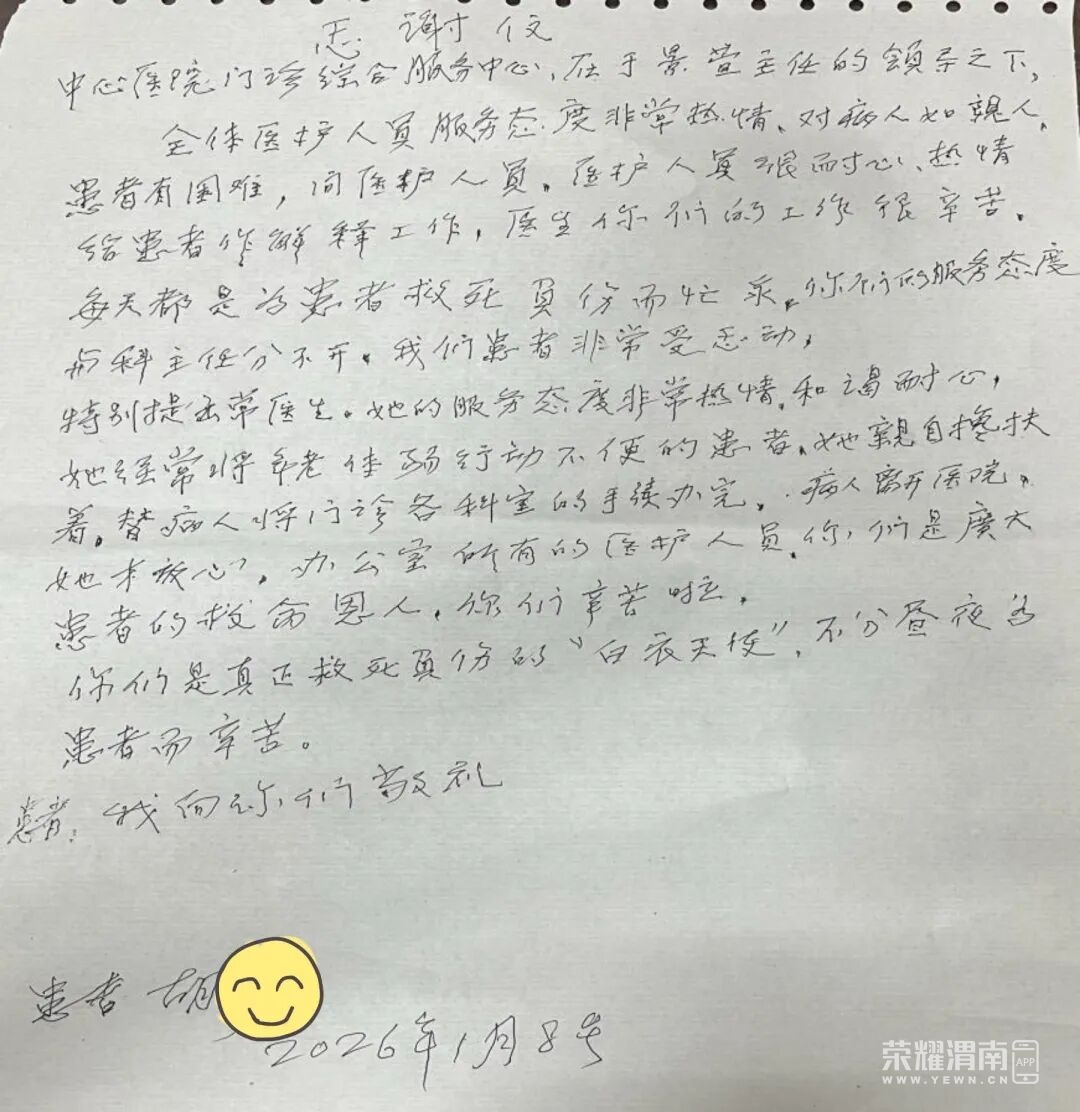 感谢信
中心医院门诊综合服务中心、在于景萱主任的领导之下,
全体医护人员服务态度非常热情、对病人如親人,
患者有困难,问医护人员。医护人员很耐心、热情
给患者作解释工作,医生你们的工作很辛苦。
每天都是为患者救死负伤而忙录。你们的服务态度
与科主任分不开。我们患者非常受感动,
特别提出常医生。她的服务态度非常热情,和谒耐心,
她经常将年老体弱行动不便的患者。她親自搀扶
着。替病人将门诊各科室的手续办完,病人离开医院。
她才放心,办公室所有的医护人员。你们是廣大
患者的救命恩人,你们辛苦啦,
你们是真正救死负伤的“白衣天使”,不分昼夜为
患者而辛苦。
患者:我向你们敬礼
患者 胡
2026年1月8号
荣耀渭南 APP
WWW.YEWN.CN